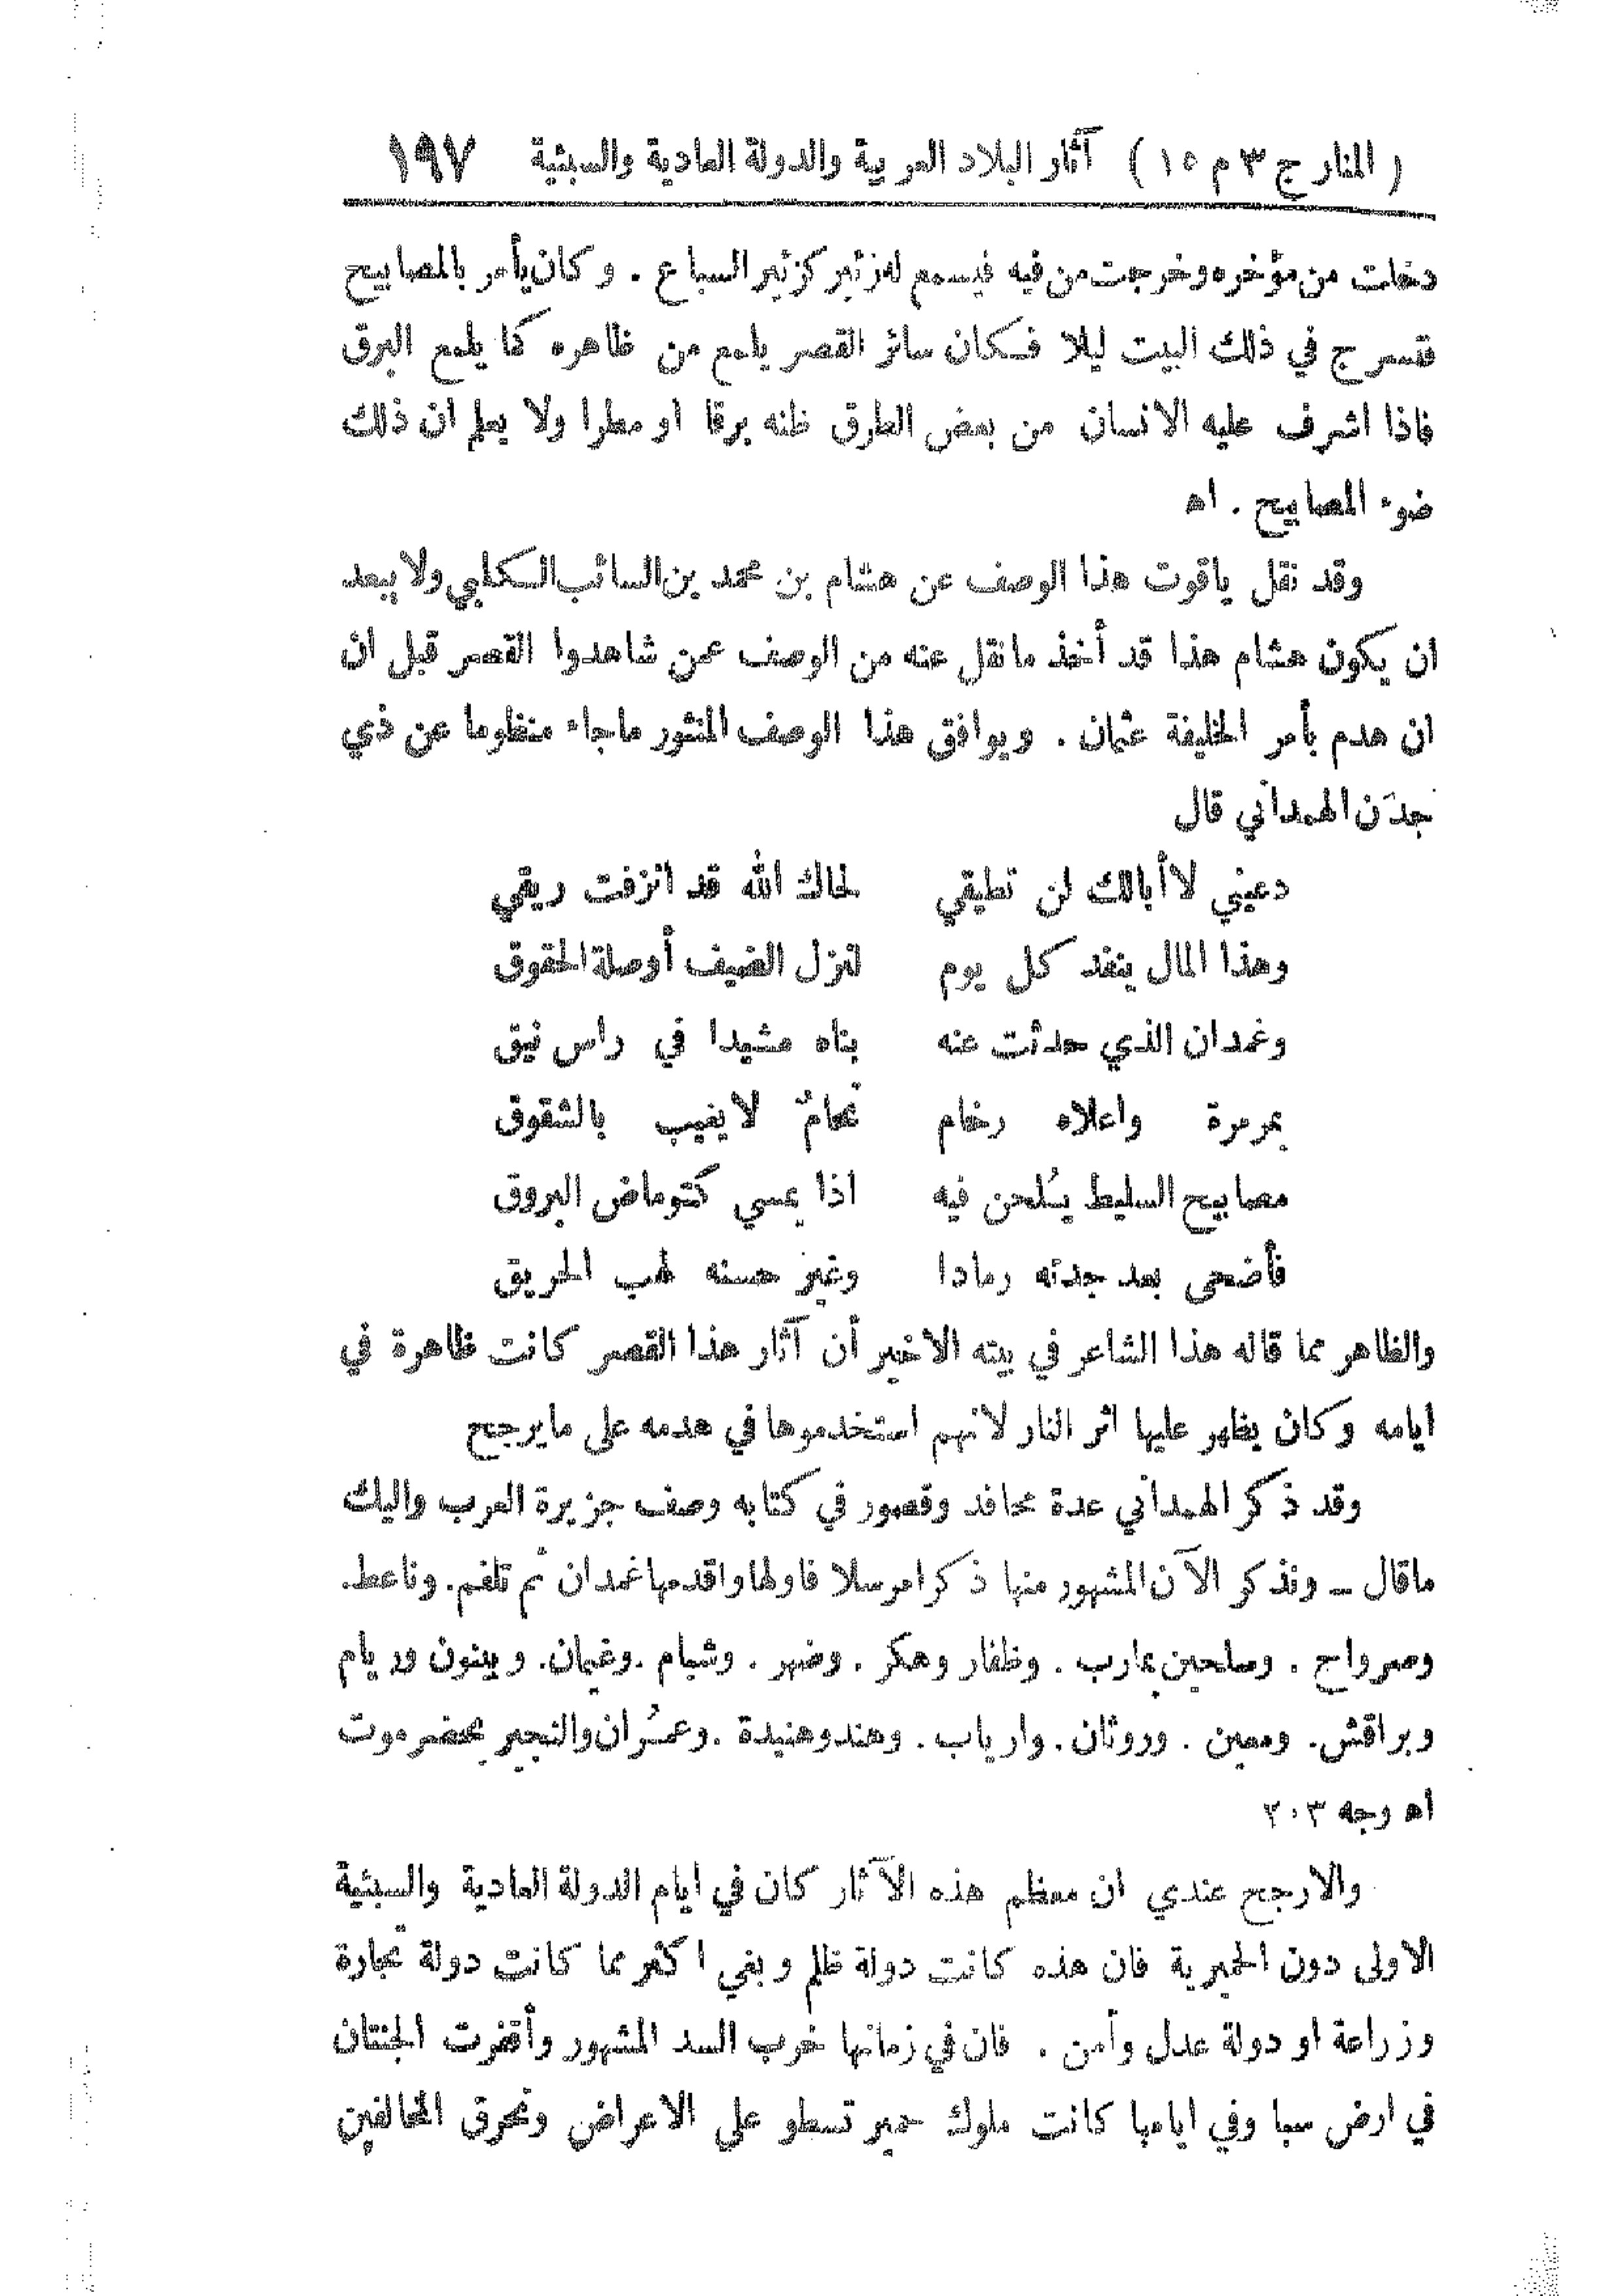 ( المنار ج ٣ م ١٥ ) آثار البلاد العربية والدولة العادية والسبئية ١٩٧
دخلت من مؤخره وخرجت من فيه فيسمع له زئير كزئير السباع . وكان يأمر بالمصابيح
فتسرج في ذلك البيت ليلا فكان سائر القصر يلمع من ظاهره كما يلمع البرق
فاذا اشرف عليه الانسان من بعض الطرق ظنه برقا او مطرا ولا يعلم ان ذلك
ضوء المصابيح . اه
وقد نقل ياقوت هذا الوصف عن هشام بن محمد بن السائب الكلبي ولا يبعد
ان يكون هشام هذا قد أخذ ما نقل عنه من الوصف عمن شاهدوا القصر قبل ان
ان هدم بأمر الخليفة عثمان . ويوافق هذا الوصف المنثور ماجاء منظوما عن ذي
جدَن الهمداني قال
دعيني لا أبالك لن تطيقي لحاك الله قد انزفت ريقي
وهذا المال ينفد كل يوم لنزل الضيف أو صلة الحقوق
وغمدان الذي حدثت عنه بناه مشيدا في راس نيق
بمرمرة واعلاه رخام تحامٌ لا يغيب بالشقوق
مصابيح السليط يسُلحن فيه اذا يمسي كتوماض البروق
فأضحى بعد جدته رمادا وغير حسنه لهب الحريق
والظاهر مما قاله هذا الشاعر في بيته الاخير أن آثار هذا القصر كانت ظاهرة في
ايامه وكان يظهر عليها اثر النار لانهم استخدموها في هدمه على مايرجح
وقد ذكر الهمداني عدة محافد وقصور في كتابه وصف جزيرة العرب واليك
ماقال ــ ونذكر الآن المشهور منها ذكرا مرسلا فاولها واقدمها غمدان ثم تلفم. وناعط.
وصرواح . وسلحين بمارب . وظفار وهكر . وضهر . وشبام . وغيمان. وبينون وريام
وبراقش. ومعين . وروثان . وارياب . وهند وهنيدة . وعمُران والنجير بحضرموت
اه وجه ٢٠٣
والارجح عندي ان معظم هذه الآثار كان في ايام الدولة العادية والسبئية
الاولى دون الحميرية فان هذه كانت دولة ظلم وبغي اكثر مما كانت دولة تجارة
وزراعة او دولة عدل وأمن . فان في زمانها خرب السد المشهور وأقفرت الجنتان
في ارض سبا وفي ايامها كانت ملوك حمير تسطو على الاعراض وتحرق المخالفين